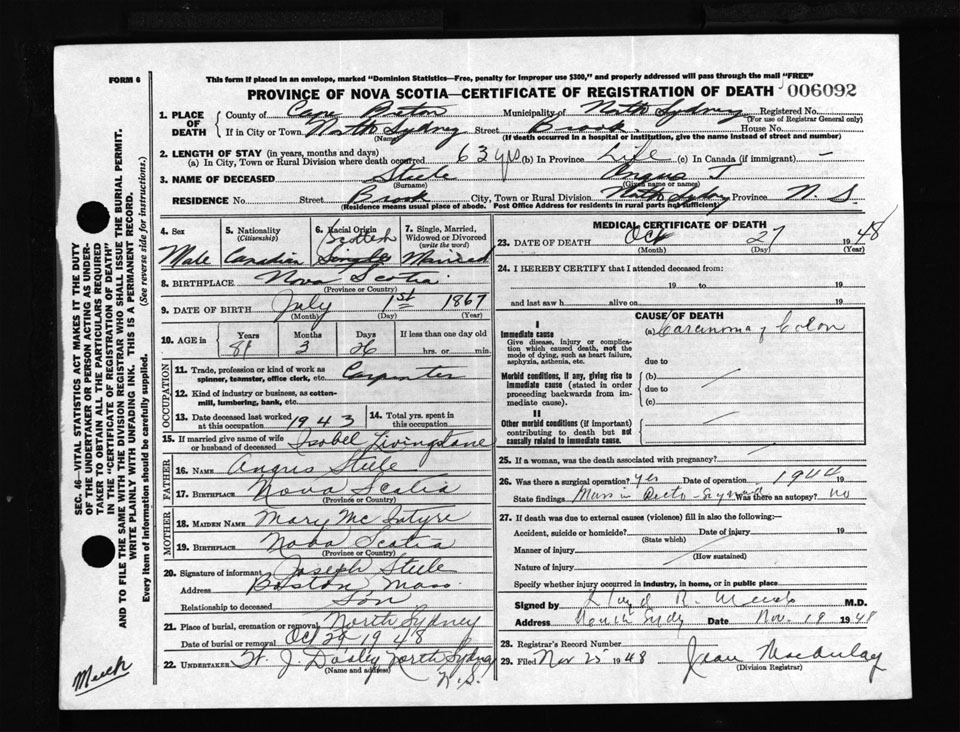 FORM 6
This form if placed in an envelope, marked "Dominion Statistics—Free, penalty for improper use $300," and properly addressed will pass through the mail "FREE"
PROVINCE OF NOVA SCOTIA—CERTIFICATE OF REGISTRATION OF DEATH 006092
1. PLACE OF DEATH
County of Cape Breton Municipality of North Sydney Registered No.
(For use of Registrar General only)
If in City or Town North Sydney Street Brook. House No.
(Name) (If death occurred in a hospital or institution, give the name instead of street and number)
2. LENGTH OF STAY (in years, months and days)
(a) In City, Town or Rural Division where death occurred 63 yrs (b) In Province Life (c) In Canada (if immigrant) —
3. NAME OF DECEASED Steele Angus J
(Surname) (Given name or names)
RESIDENCE No. Street Brook City, Town or Rural Division North Sydney Province N. S
(Residence means usual place of abode. Post Office Address for residents in rural parts not sufficient)
4. Sex
Male
5. Nationality
(Citizenship)
Canadian
6. Racial Origin
Scottish
7. Single, Married, Widowed or Divorced
(write the word)
Married
8. BIRTHPLACE Nova Scotia
(Province or Country)
9. DATE OF BIRTH July 1st 1867
(Month) (Day) (Year)
10. AGE in
Years Months Days If less than one day old
81 3 26 hrs. or min.
OCCUPATION
11. Trade, profession or kind of work as
spinner, teamster, office clerk, etc. Carpenter
12. Kind of industry or business, as cotten-
mill, lumbering, bank, etc.
13. Date deceased last worked at this occupation 1943
14. Total yrs. spent in this occupation
15. If married give name of wife
or husband of deceased Isobel Livingstone
FATHER
16. NAME Angus Steele
17. BIRTHPLACE Nova Scotia
(Province or Country)
MOTHER
18. MAIDEN NAME Mary McIntyre
19. BIRTHPLACE Nova Scotia
(Province or Country)
20. Signature of informant Joseph Steele
Address Boston Mass.
Relationship to deceased Son
21. Place of burial, cremation or removal North Sydney
Date of burial or removal Oct 29 1948
22. UNDERTAKER W. J. Dooley North Sydney
(Name and address) N.S.
MEDICAL CERTIFICATE OF DEATH
23. DATE OF DEATH Oct 27 1948
(Month) (Day) (Year)
24. I HEREBY CERTIFY that I attended deceased from:
19 to 19
and last saw h alive on 19
CAUSE OF DEATH
I
Immediate cause (a) Carcinoma of Colon
Give disease, injury or complica-
tion which caused death, not the
mode of dying, such as heart failure,
asphyxia, asthenia, etc. due to
Morbid conditions, if any, giving rise to (b)
immediate cause (stated in order due to
proceeding backwards from im-
mediate cause). (c)
II
Other morbid conditions (if important)
contributing to death but not
causally related to immediate cause.
25. If a woman, was the death associated with pregnancy?
26. Was there a surgical operation? Yes Date of operation 1944 19
State findings Mass in Recto-Sigmoid Was there an autopsy? no
27. If death was due to external causes (violence) fill in also the following:—
Accident, suicide or homicide? Date of injury 19
(State which)
Manner of injury
(How sustained)
Nature of injury
Specify whether injury occurred in industry, in home, or in public place
Signed by M.D.
Address North Sydney Date Nov. 19 1948
28. Registrar's Record Number
29. Filed Nov 25 1948 Jean MacAulay
(Division Registrar)
SEC. 46—VITAL STATISTICS ACT MAKES IT THE DUTY
OF THE UNDERTAKER OR PERSON ACTING AS UNDER-
TAKER TO OBTAIN ALL THE PARTICULARS REQUIRED
IN THE "CERTIFICATE OF REGISTRATION OF DEATH"
AND TO FILE THE SAME WITH THE DIVISION REGISTRAR WHO SHALL ISSUE THE BURIAL PERMIT.
WRITE PLAINLY WITH UNFADING INK. THIS IS A PERMANENT RECORD.
Every item of Information should be carefully supplied. (See reverse side for instructions.)